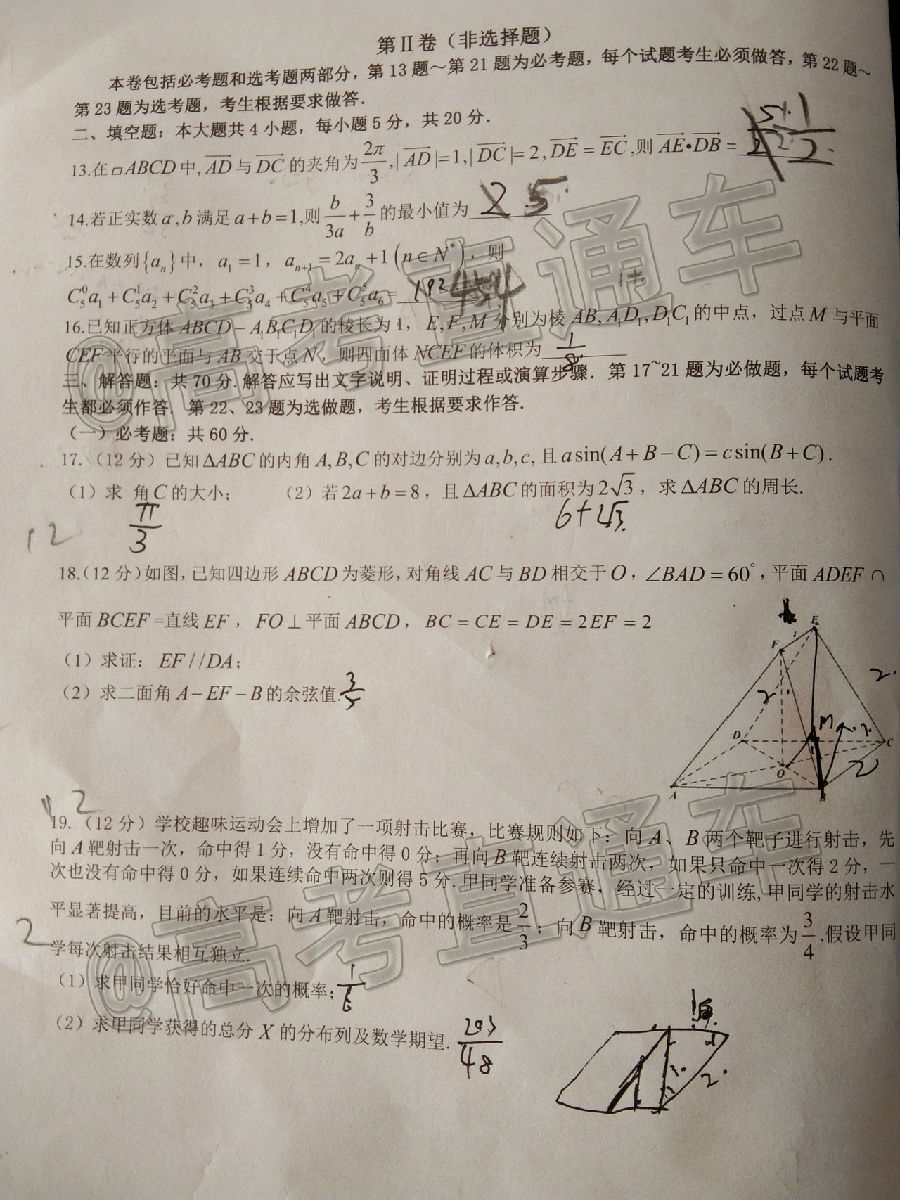 第Ⅱ卷（非选择题）
本卷包括必考题和选考题两部分，第13题～第21题为必考题，每个试题考生必须做答，第22题～
第23题为选考题，考生根据要求做答.
二、填空题：本大题共4小题，每小题5分，共20分.
13.在▱ABCD中,AD与DC的夹角为2π/3,|AD|=1,|DC|=2,DE=EC,则AE•DB=
14.若正实数a,b满足a+b=1,则b/3a+3/b的最小值为 25
15.在数列{aₙ}中，a₁=1，aₙ₊₁=2aₙ+1(n∈N*)，则
C₅⁰a₁+C₅¹a₂+C₅²a₃+C₅³a₄+C₅⁴a₅+C₅⁵a₆= 192 454
16.已知正方体ABCD−A₁B₁C₁D₁的棱长为1，E,F,M分别为棱AB,A₁D₁,D₁C₁的中点，过点M与平面
CEF平行的平面与AB交于点N，则四面体NCEF的体积为 1/8
三、解答题：共70分.解答应写出文字说明、证明过程或演算步骤．第17~21题为必做题，每个试题考
生都必须作答.第22、23题为选做题，考生根据要求作答.
（一）必考题：共60分.
17.（12分）已知ΔABC的内角A,B,C的对边分别为a,b,c,且asin(A+B−C)=csin(B+C).
（1）求 角C的大小；（2）若2a+b=8，且ΔABC的面积为2√3，求ΔABC的周长.
π/3 6+2√3
12
18.(12分)如图,已知四边形ABCD为菱形,对角线AC与BD相交于O，∠BAD=60°,平面ADEF∩
平面BCEF=直线EF，FO⊥平面ABCD，BC=CE=DE=2EF=2
（1）求证：EF//DA;
（2）求二面角A−EF−B的余弦值. 3/5
F E
2 2
D M C
O 2
A B
12
19.（12分）学校趣味运动会上增加了一项射击比赛，比赛规则如下：向A、B两个靶子进行射击，先
向A靶射击一次，命中得1分，没有命中得0分；再向B靶连续射击两次，如果只命中一次得2分，一
次也没有命中得0分，如果连续命中两次则得5分.甲同学准备参赛，经过一定的训练,甲同学的射击水
平显著提高，目前的水平是：向A靶射击，命中的概率是2/3；向B靶射击，命中的概率为3/4.假设甲同
2
学每次射击结果相互独立.
（1）求甲同学恰好命中一次的概率; 1/6
（2）求甲同学获得的总分X的分布列及数学期望. 203/48
2
@高考直通车
@高考直通车